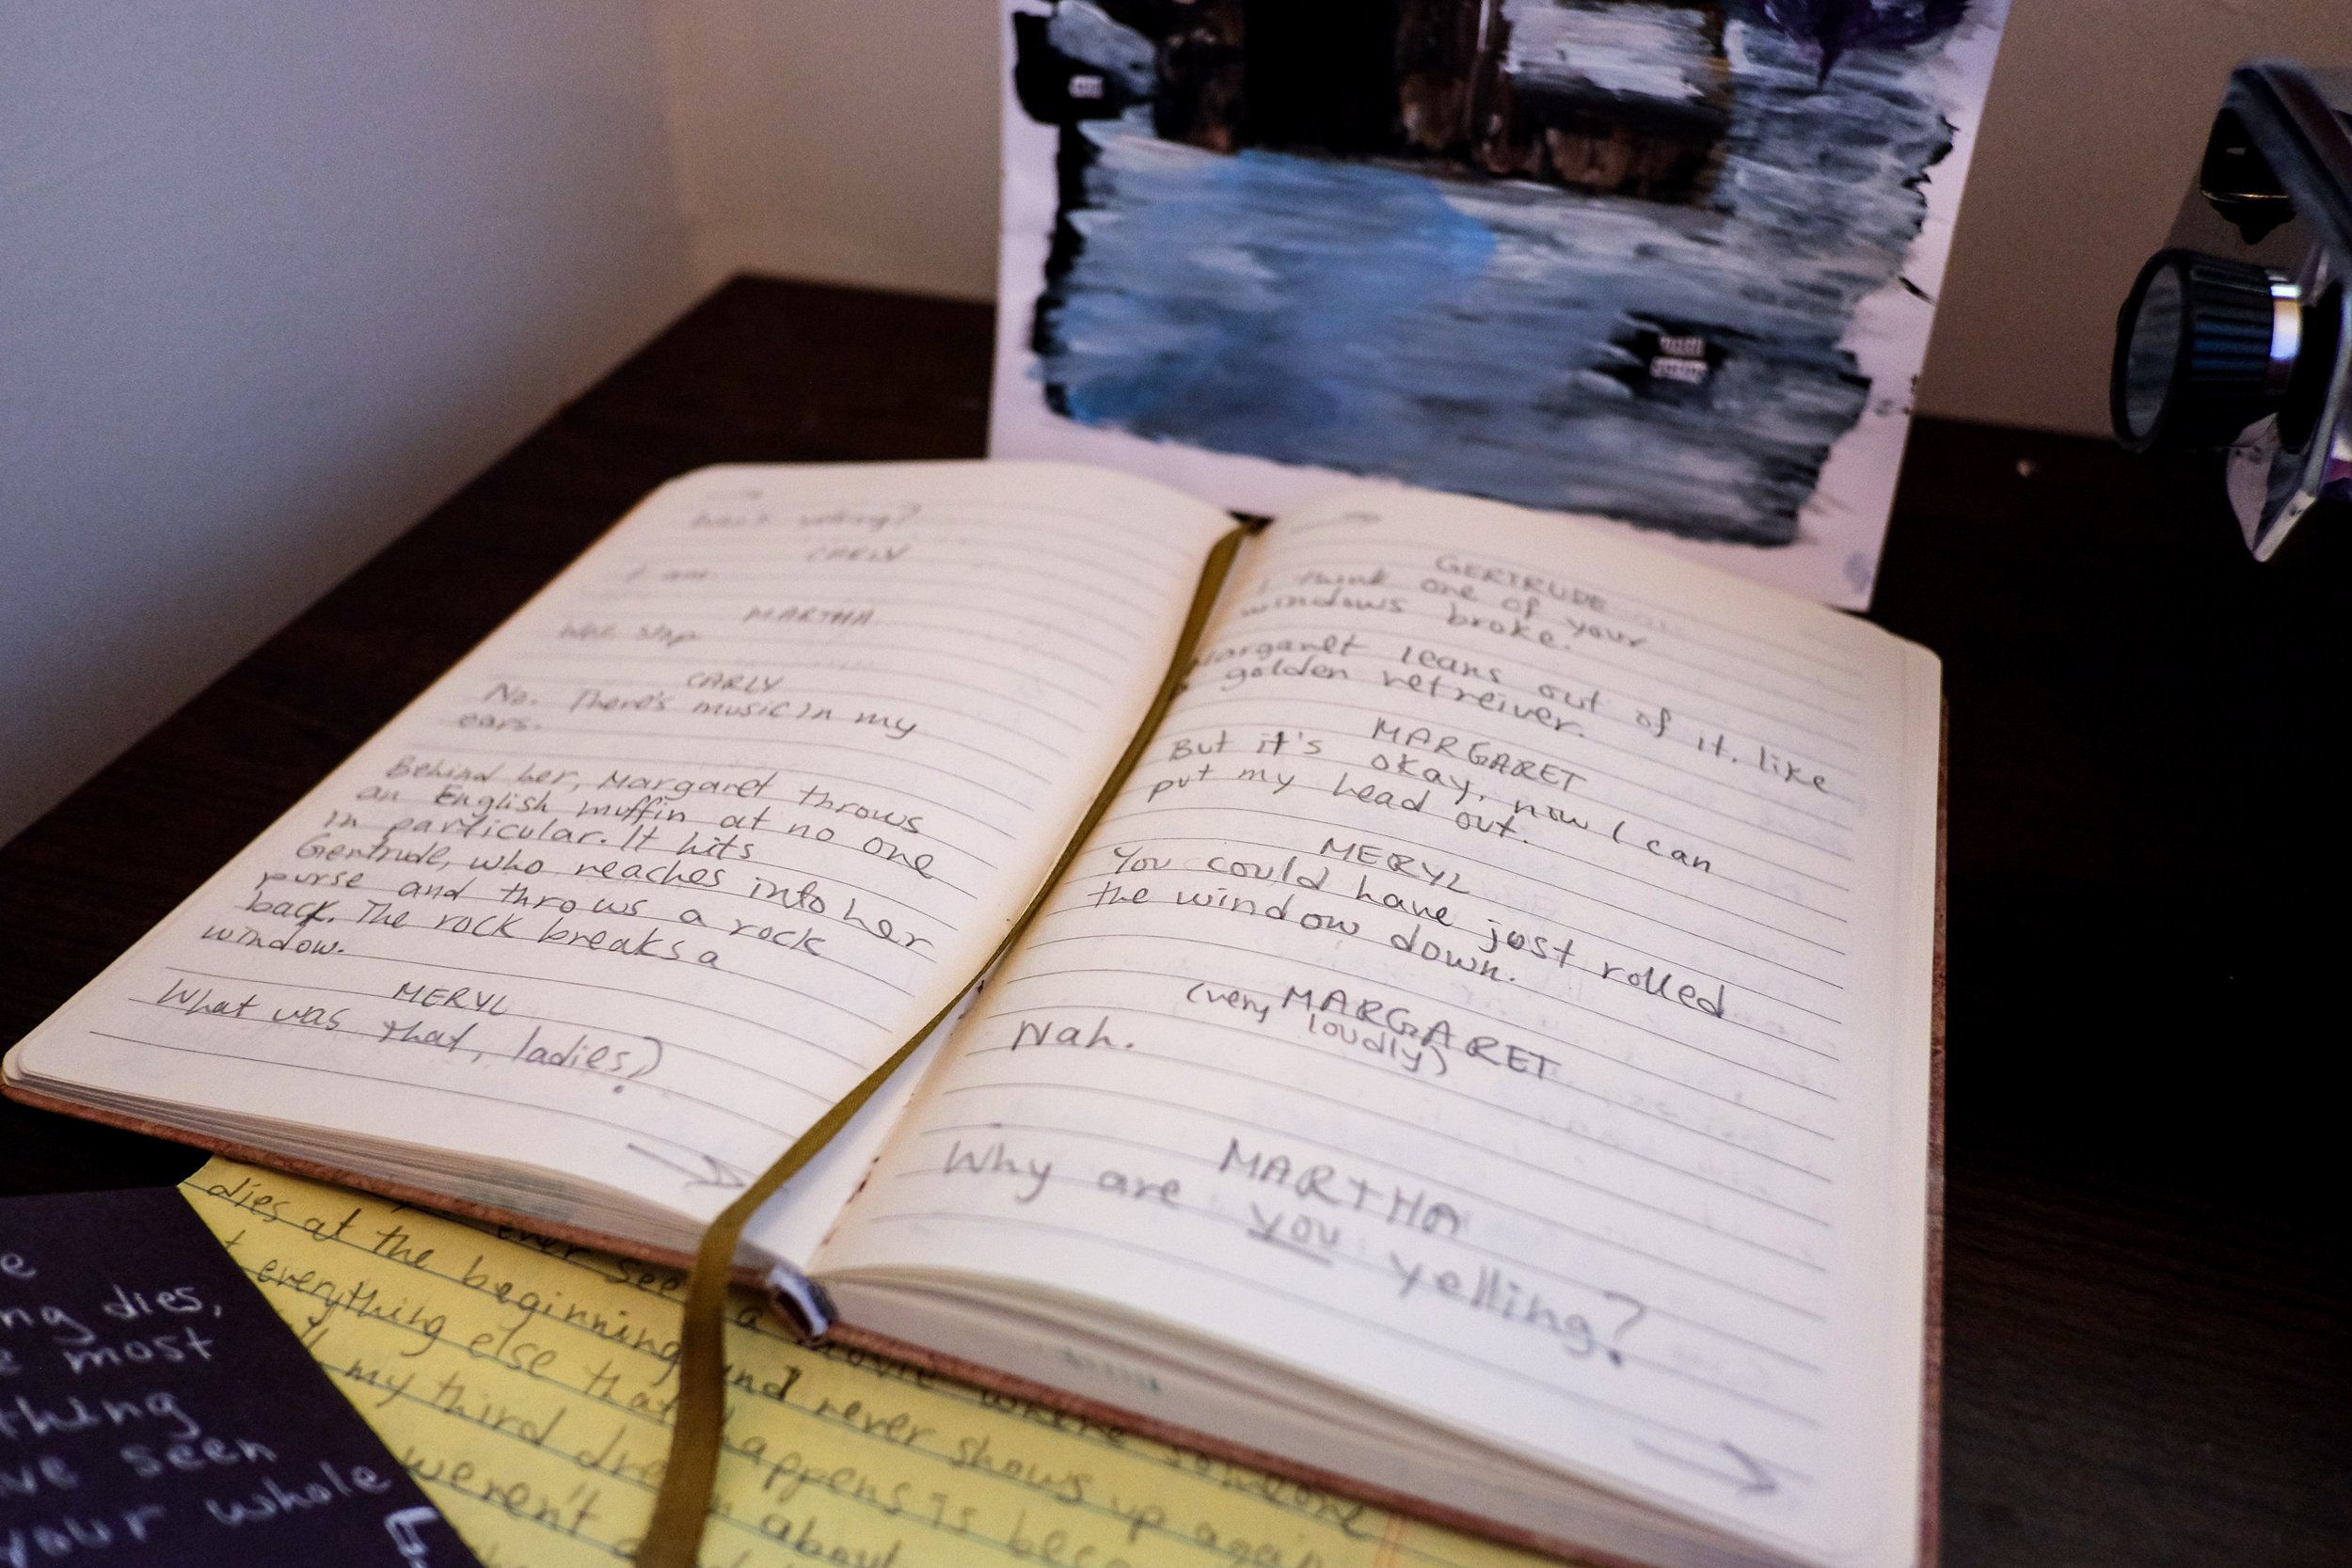 yelling?
CARLY
I am.
MARTHA
Well stop
CARLY
No. There's music in my
ears.
Behind her, Margaret throws
an English muffin at no one
in particular. It hits
Gertrude, who reaches into her
purse and throws a rock
back. The rock breaks a
window.
MERYL
What was that, ladies?
GERTRUDE
I think one of your
windows broke.
Margaret leans out of it. like
golden retreiver.
MARGARET
But it's okay, now I can
put my head out.
MERYL
You could have just rolled
the window down.
MARGARET
(very loudly)
Nah.
MARTHA
Why are you yelling?
ever see a movie where someone
dies at the beginning and never shows up again
everything else that happens is
my third dream
weren't about
e
ng dies,
most
thing
ve seen
your whole